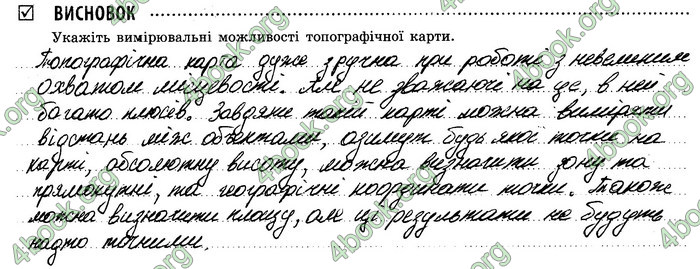 ☑ ВИСНОВОК
Укажіть вимірювальні можливості топографічної карти.
Топографічна карта дуже зручна при роботі з невеликим
охватом місцевості. Але не зважаючі на це, в ній
багато плюсів. Завдяки такій карті можна виміряти
відстань між об'єктами, азимут будь якої точки на
карті, абсолютну висоту, можна визначити зону та
прямокутні, та географічні координати точки. Також
можна визначити площу, але ці результати не будуть
надто точними.